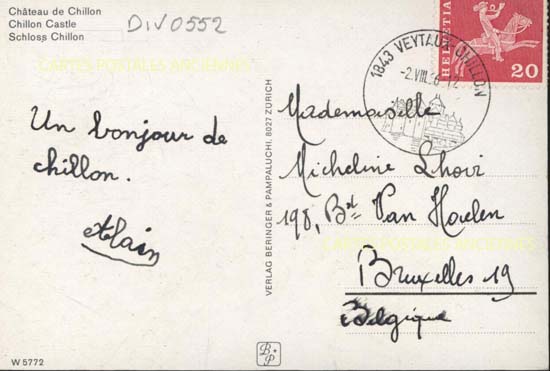 Château de Chillon
Chillon Castle
Schloss Chillon
DIV0552
CARTES POSTALES ANCIENNES
Un bonjour de
chillon.
Alain
W 5772
VERLAG BERINGER & PAMPALUCHI, 8027 ZÜRICH
B P
1843 VEYTAUX-CHILLON
HELVETIA
20
Mademoiselle
Micheline
198, Bd Van Haelen
CARTES POSTALES ANCIENNES
Bruxelles 19
Belgique